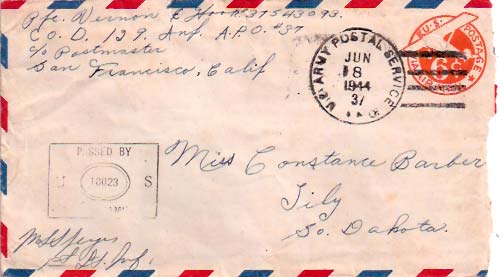 Pfc. Vernon E Hook 37543093.
CO. D 129. Inf. A.P.O. #37
c/o Postmaster
San Francisco, Calif
U.S. ARMY POSTAL SERVICE
JUN
8
1944
37
U.S. POSTAGE
6¢
VIA AIR MAIL
PASSED BY
U 18023 S
Miss Constance Barber
Tily
So. Dakota.
Inf.